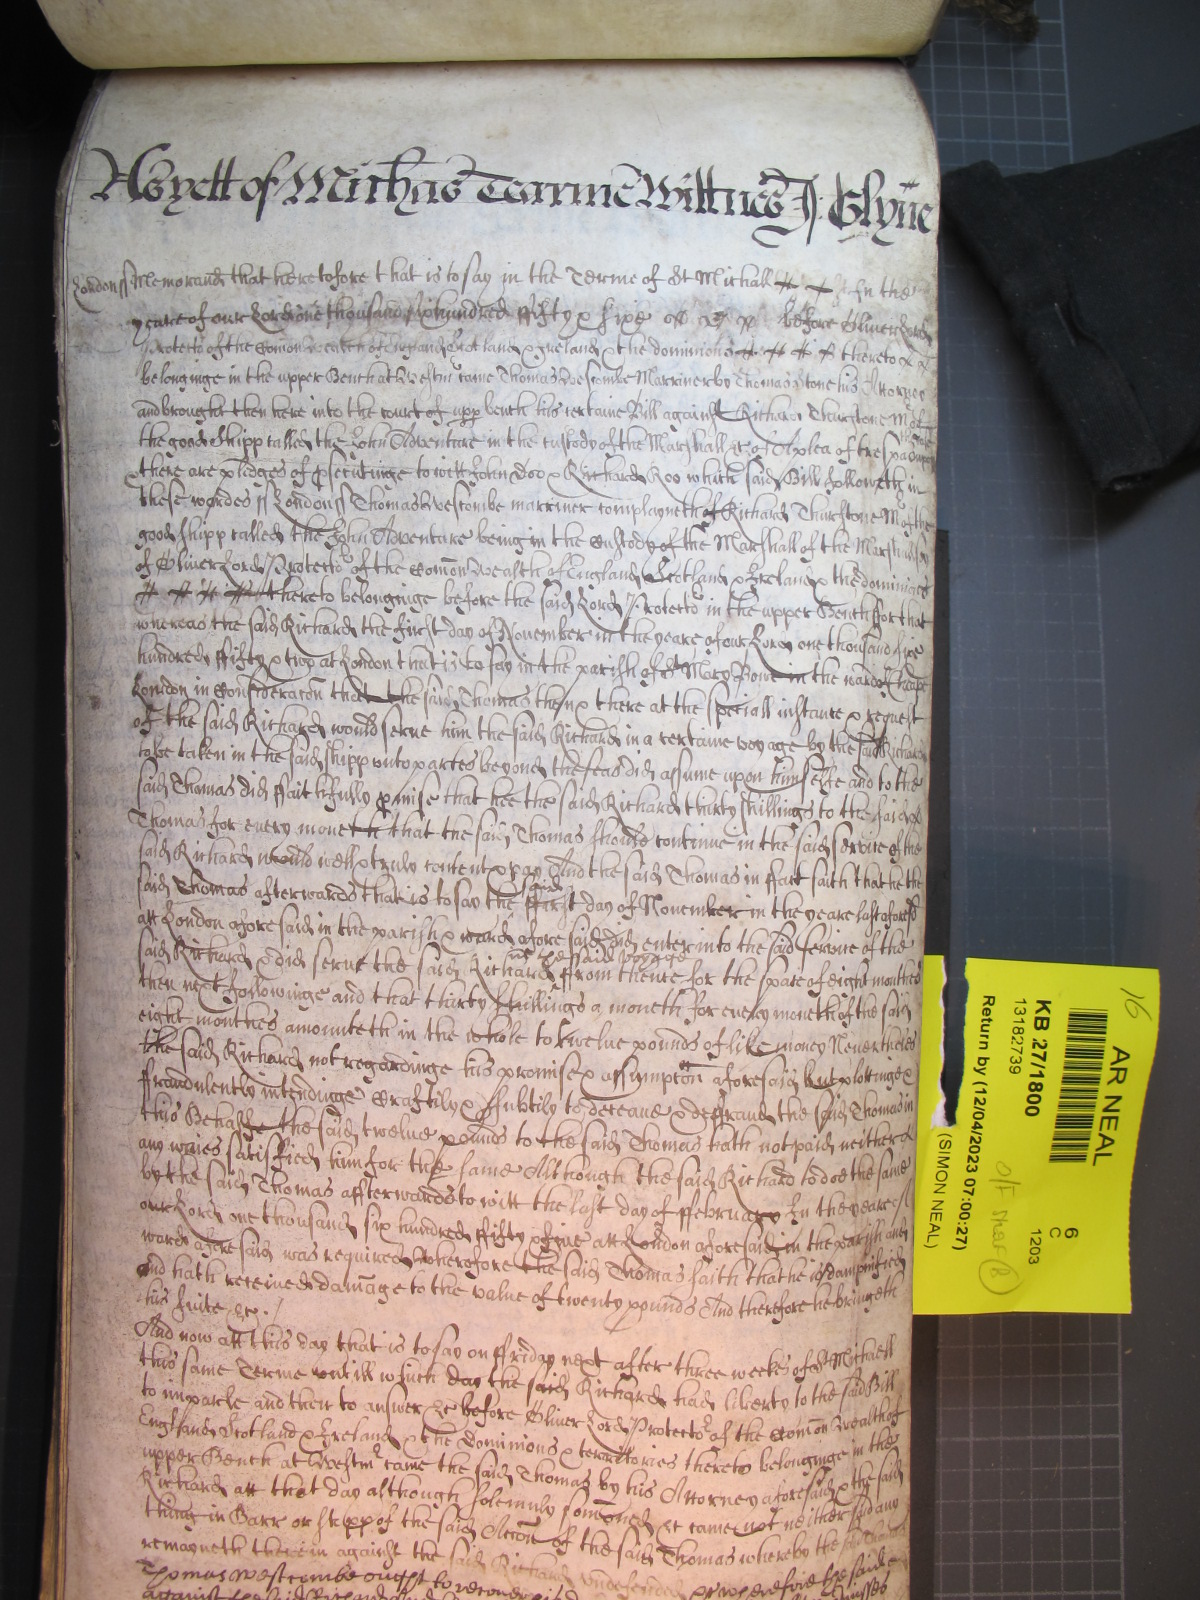 As yett of Mich̄as Tearme Wittnes J: Glyn̄e
London ss Memorand that heretofore that is to say in the Terme of St Michaell In the
yeare of our Lord one thousand six hundred ffifty & sixe before Oliver Lord
Protector of the Com̄on Wealth of England Scotland & Ireland & the dominions thereto
belonginge in the upper Bench at Westmr came Thomas Westcombe Marriner by Thomas Stone his Attorney
and brought then here into the court of upp bench his certaine Bill against Richard Thurstone Mr of
the good Shipp called the John Adventure in the custody of the Marshall &c of A plea of trespas
there are pledges of psecutinge to witt John Doo & Richard Roo which said Bill ffolloweth in
these wordes ss London ss Thomas Westcombe marriner complayneth of Richard Thurstone Mr of the
good shipp called the John Adventure being in the Custody of the Marshall of the Marshalsey
of Oliver Lord Protector of the Com̄on Wealth of England Scotland & Ireland & the dominions
thereto belonginge before the said Lord Protector in the upper Bench ffor that
whereas the said Richard the first day of November in the yeare of our Lord one thousand six
hundred ffifty & two at London that is to say in the parish of St Mary Bowe in the ward of Cheape
London in Consideracōn that the said Thomas then & there at the speciall instance & request
of the said Richard would serve him the said Richard in a certaine voyage by the said Richard
to be taken in the said shipp unto partes beyond the seas did assume upon himselfe and to the
said Thomas did ffaithfully pmise that hee the said Richard thirty shillings to the said
Thomas for every moneth that the said Thomas should continue in the said service of the
said Richard would well & truly content & pay And the said Thomas in ffact saith that he the
said Thomas afterwards that is to say the said ffirst day of November in the yeare last aforesd
att London aforesaid in the parish & ward aforesaid did enter into the said service of the
said Richard & did serve the said Richard in the said voyage ffrom thence for the space of eight monthes
then next followinge and that thirty shillings a moneth for every moneth of the said
eight monthes amounteth in the whole to twelve pounds of like money Nevertheles
the said Richard not regardinge his promise & assumptōn aforesaid but plottinge &
ffraudulently intendinge Craftily & subtily to deceave & deffraud the said Thomas in
this Behalfe the said twelve pounds to the said Thomas hath not paid neither
any waies satisfied him for the same Although the said Richard to doe the same
by the said Thomas affterwards to witt the last day of ffebruary In the yeare of
our Lord one thousand six hundred ffifty & five att London aforesaid in the parish and
ward aforesaid was required Wherefore the said Thomas saith that he is dampnified
and hath received damage to the value of twenty pounds And therefore he bringeth
his suite &c.
And now att this day that is to say on ffriday next after three weekes of St Michaell
this same Terme untill which day the said Richard had liberty to the said Bill
to imparle and then to answer &c before Oliver Lord Protector of the Com̄on Wealth of
England Scotland & Ireland & the Dominions & territories thereto belonginge in the
upper Bench at Westmr came the said Thomas by his Attorney aforesaid & the said
Richard att that day although solemnly som̄oned &c came not neither said any
thing in Barr or stopp of the said Accōn of the said Thomas whereby the
remayneth therein against the said Richard undefended & wherefore the saide
Thomas Westcombe ought to recover
against the said Richard
16
AR NEAL
KB 27/1800
13182739
Return by (12/04/2023 07:00:27)
(SIMON NEAL)
6
C
1203
O/F Shelf 8